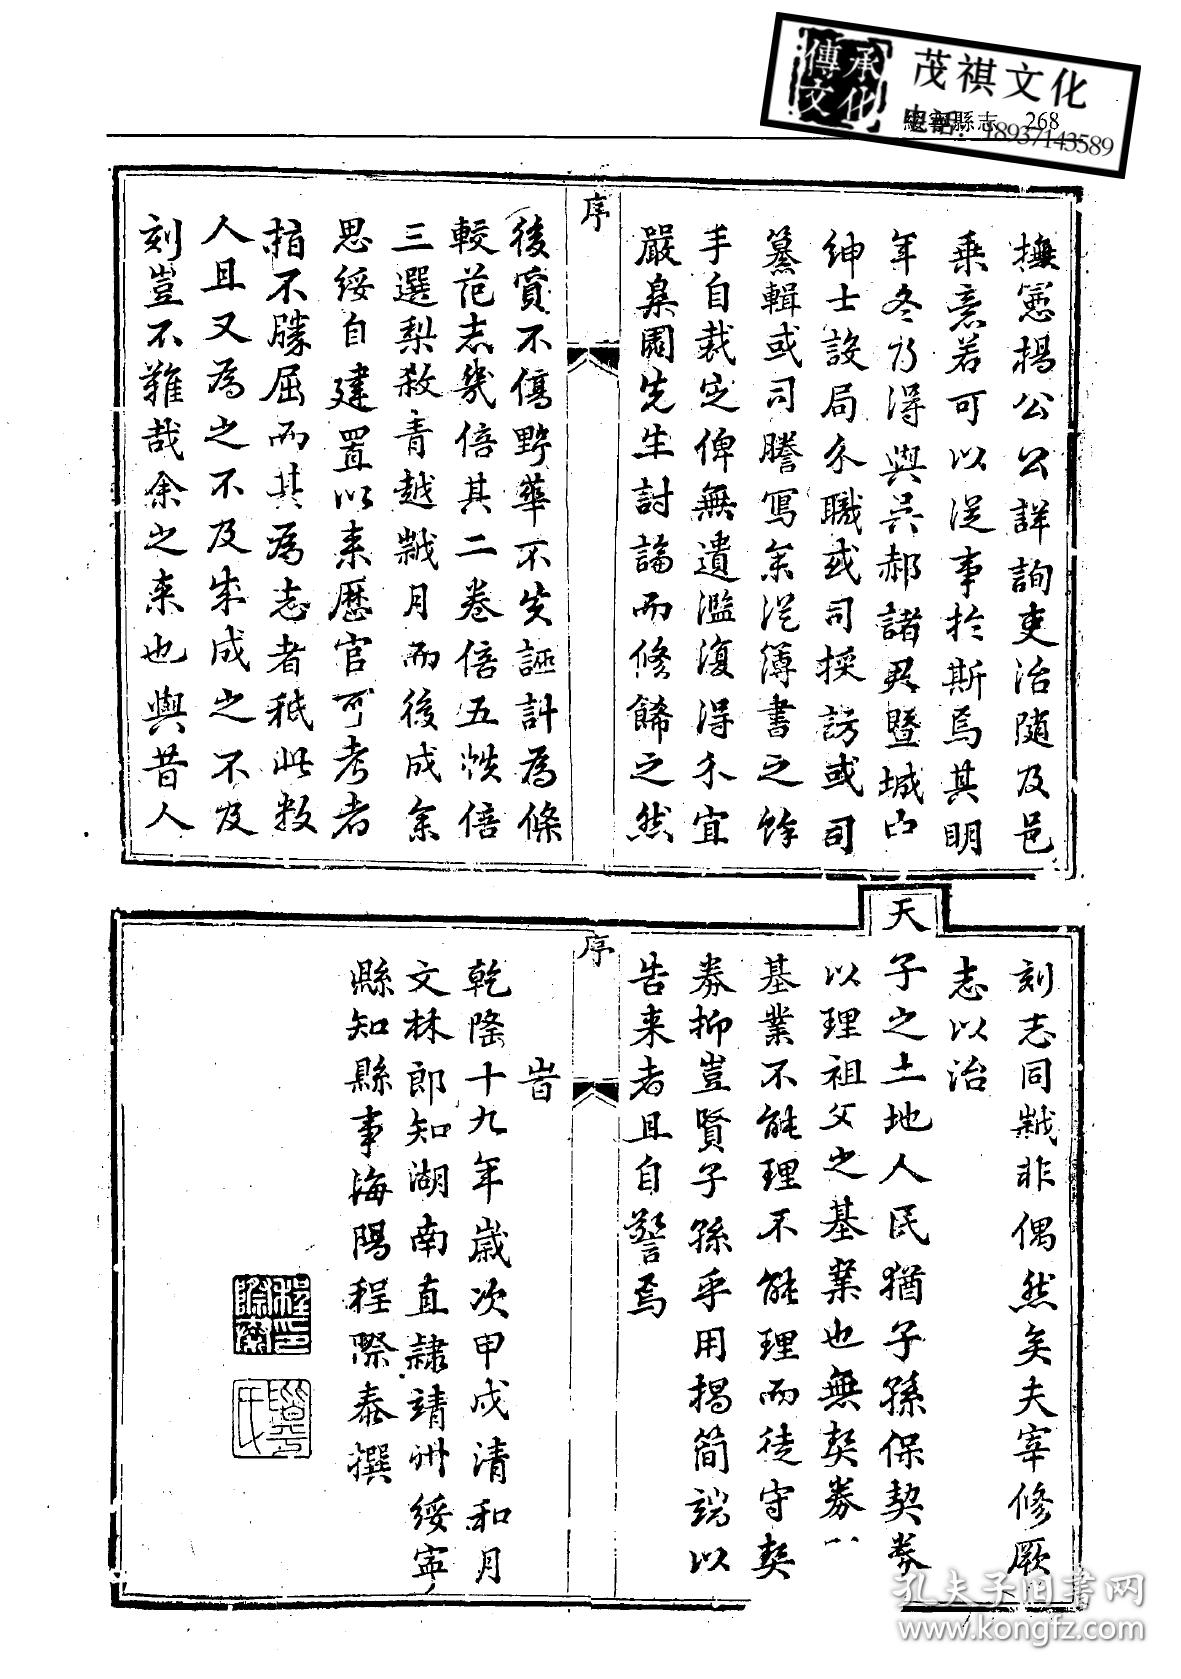 傳承
文化
茂祺文化
綏寧縣志 268
電話:18937143589
序
撫憲楊公公詳詢吏治随及邑
乘意若可以従事於斯焉其明
年冬乃得與吳郝諸君暨城中
紳士設局分職或司採訪或司
纂輯或司謄寫余従簿書之餘
手自裁定俾無遺濫復得分宜
嚴臬園先生討論而修餙之然
後實不傷野華不失誣計為條
較范志幾倍其二卷倍五帙倍
三選梨殺青越數月而後成余
思綏自建置以来歴官可考者
指不勝屈而其為志者秪此数
人且又為之不及成成之不及
刻豈不難哉余之来也與昔人
序
刻志同數非偶然矣夫宰修厥
志以治
天子之土地人民猶子孫保契券
以理祖父之基業也無契券
基業不能理不能理而徒守契
券抑豈賢子孫乎用揭简端以
告来者且自警焉
峕
乾隆十九年歲次甲戌清和月
文林郎知湖南直隷靖州綏寧
縣知縣事海陽程際泰撰
孔夫子旧書网
www.kongfz.com